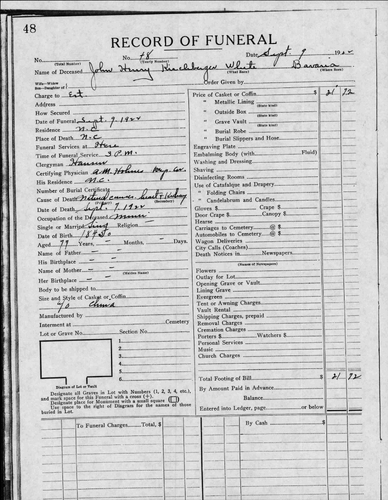 48
RECORD OF FUNERAL
No. 48 Date Sept. 9 1922
(Total Number) (Yearly Number)
Name of Deceased John Henry White Bavaria
(What Race) (Where Born)
Charge to Est
Address
How Secured
Date of Funeral Sept. 9. 1922
Residence N.C.
Place of Death N.C.
Funeral Services at Here
Time of Funeral Service 3 P.M.
Clergyman Hansen
Certifying Physician A.M. Holmes
His Residence N.C.
Number of Burial Certificate
Cause of Death Natural causes
Date of Death Sept. 7. 1922
Occupation of the Deceased Miner
Single or Married Sing Religion
Date of Birth
Aged 79 Years, Months, Days.
Name of Father
His Birthplace
Name of Mother
(Maiden Name)
Her Birthplace
Body to be shipped to
Size and Style of Casket or Coffin
Manufactured by
Interment at Cemetery
Lot or Grave No. Section No.
1.
2.
3.
4.
5.
6.
Diagram of Lot or Vault
Designate all Graves in Lot with Numbers (1, 2, 3, 4, etc.),
and mark space for this Funeral with a cross (+).
Designate place for Monument with a small square
Use space to the right of Diagram for the names of those
buried in Lot.
To Funeral Charges. Total, $
Order Given by
Price of Casket or Coffin $ 21 92
" Metallic Lining
" Outside Box
" Grave Vault
" Burial Robe
" Burial Slippers and Hose
Engraving Plate
Embalming Body (with Fluid)
Washing and Dressing
Shaving
Disinfecting Rooms
Use of Catafalque and Drapery
" Folding Chairs
" Candelabrum and Candles
Gloves $ Crape $
Door Crape $ Canopy $
Hearse
Carriages to Cemetery @ $
Automobiles to Cemetery @ $
Wagon Deliveries
City Calls (Coaches)
Death Notices in Newspapers
(Names of Newspapers)
Flowers
Outlay for Lot
Opening Grave or Vault
Lining Grave
Evergreen
Tent or Awning Charges
Vault Rental
Shipping Charges, prepaid
Removal Charges
Cremation Charges
Porters $ Watchers $
Personal Services
Music
Church Charges
Total Footing of Bill $ 21 92
By Amount Paid in Advance
Balance
Entered into Ledger, page or below
By Cash, $